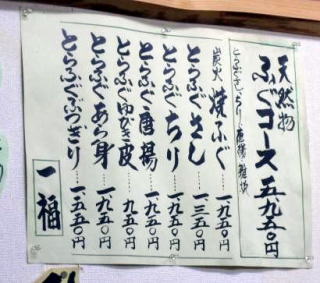 天然物
ふぐコース 五、九五〇円
とらふぐさし、ちり、唐揚、雑炊
炭火 焼ふぐ……一、九五〇円
とらふぐさし……一、三五〇円
とらふぐちり……一、九五〇円
とらふぐ唐揚……一、九五〇円
とらふぐゆびき皮……七五〇円
とらふぐあら身……一、九五〇円
とらふぐぶつぎり……一、五五〇円
一福